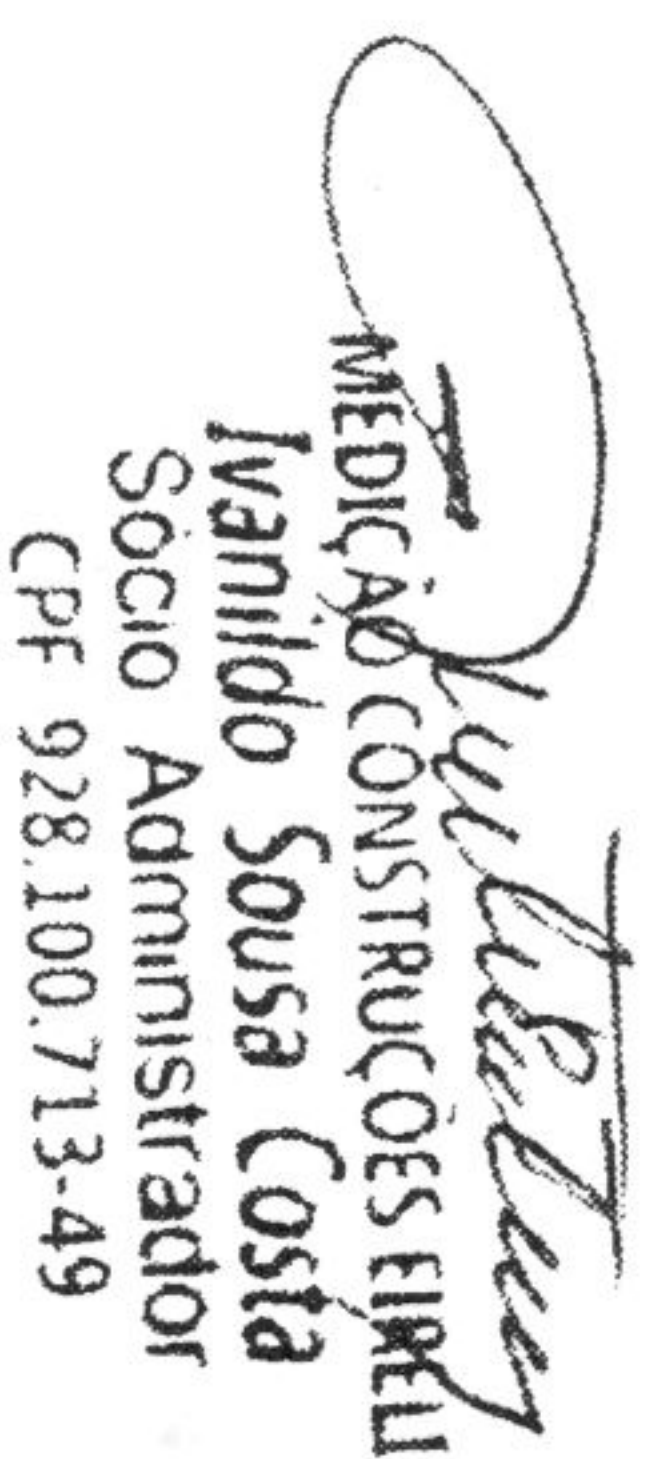 MEDIÇÃO CONSTRUÇÕES EIRELI
Ivanildo Sousa Costa
Sócio Administrador
CPF 928.100.713-49